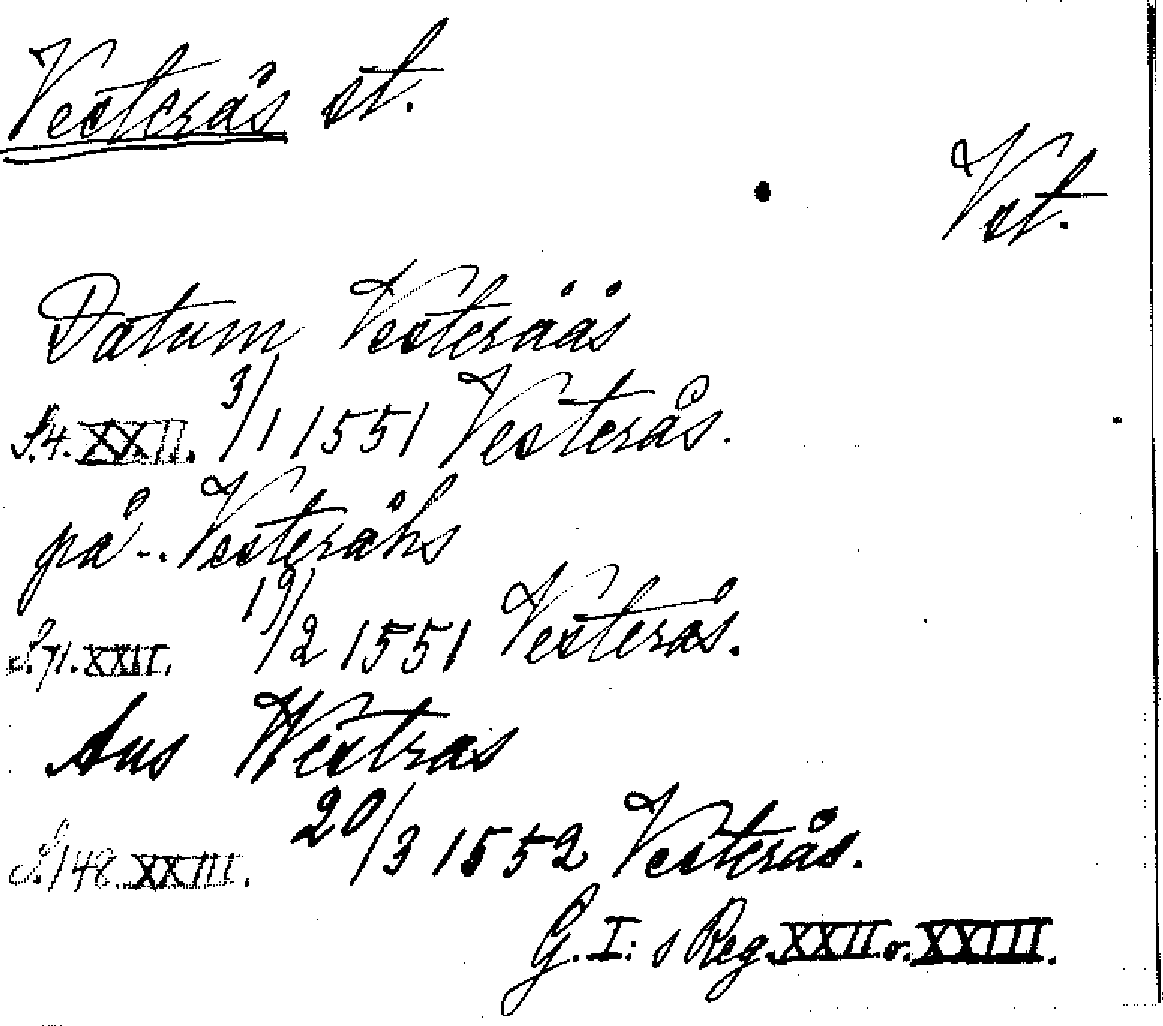 Vesterås st.
Vst.
Datum Vesteråås
S.4. XXII. 3/1 1551 Vesterås.
på -- Vesteråhs
S.71. XXII. 19/2 1551 Vesterås.
Aus Westras
S.148. XXIII. 20/3 1552 Vesterås.
G. I: s Reg. XXII o. XXIII.